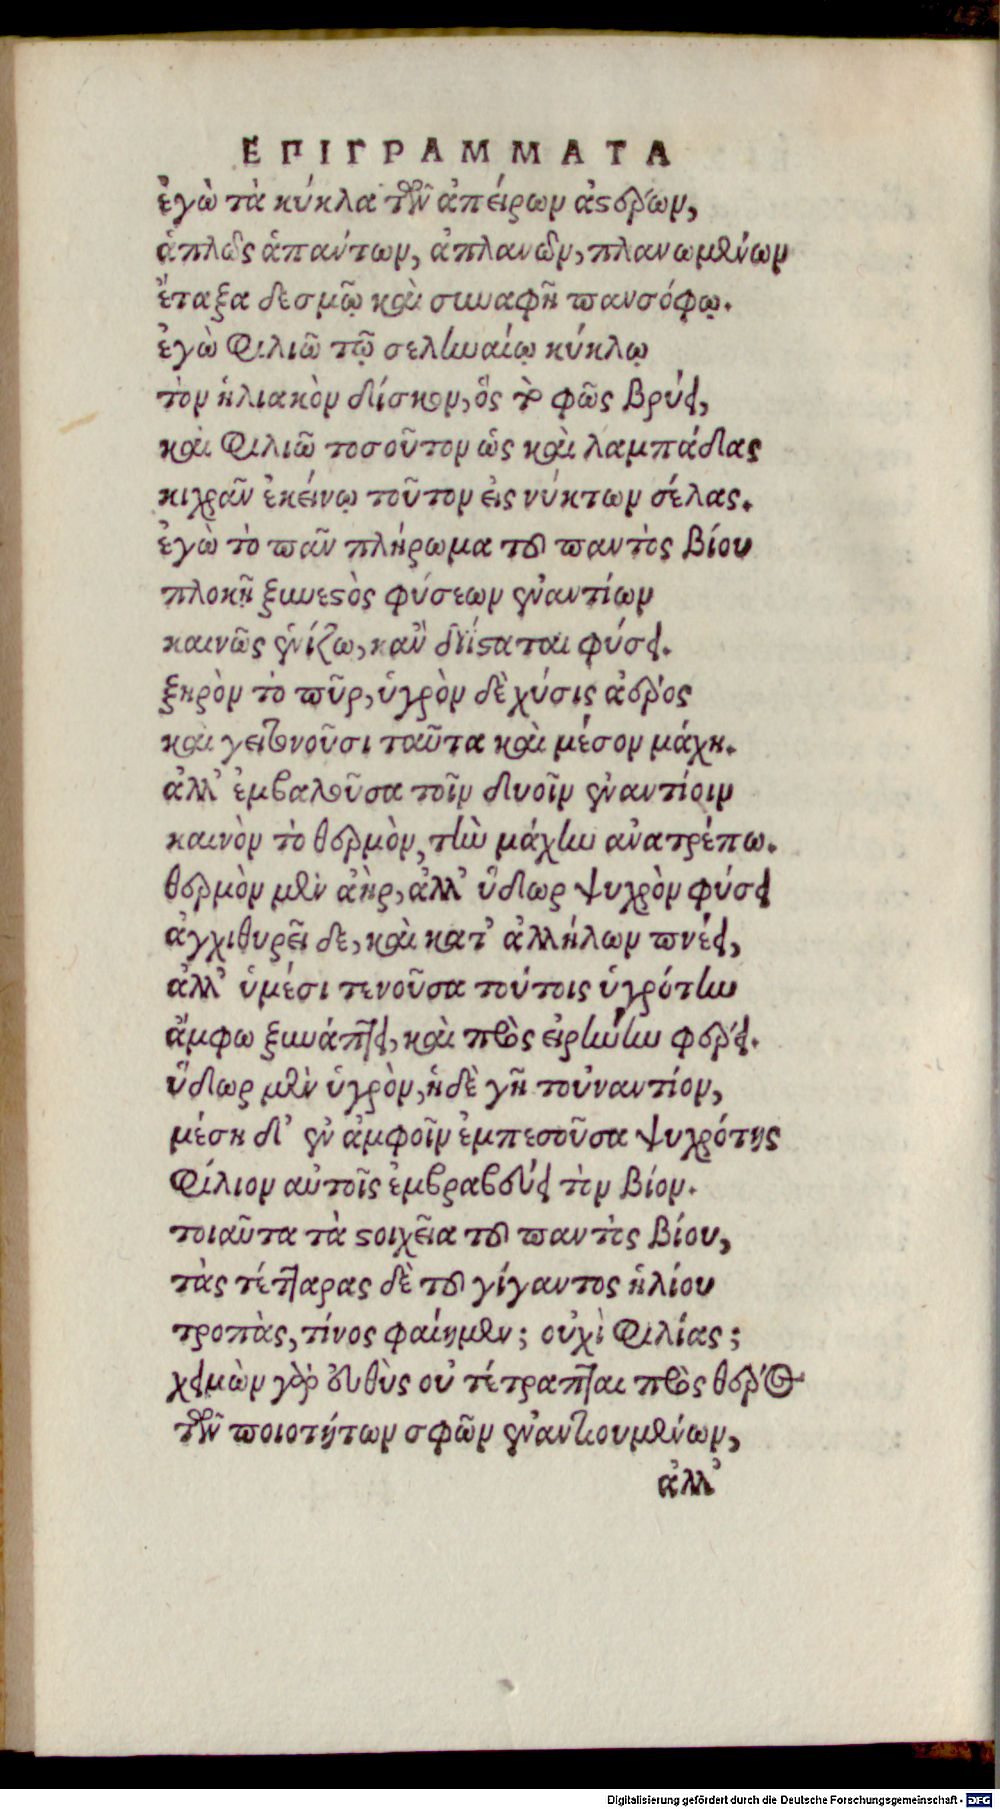 ΕΠΙΓΡΑΜΜΑΤΑ
ἐγὼ τὰ κύκλα τῶν ἀπείρων ἀστέρων,
ἁπλῶς ἁπάντων, ἀπλανῶν, πλανωμένων
ἔταξα δεσμῷ καὶ συναφῇ πανσόφῳ.
ἐγὼ φιλιῶ τῷ σεληναίῳ κύκλῳ
τὸν ἡλιακὸν δίσκον, ὃς τὸ φῶς βρύει,
καὶ φιλιῶ τοσοῦτον ὡς καὶ λαμπάδας
κιχρᾶν ἐκείνῳ τοῦτον εἰς νύκτων σέλας.
ἐγὼ τὸ πᾶν πλήρωμα τοῦ παντὸς βίου
πλοκῇ ξυνεστὸς φύσεων ἐναντίων
καινῶς ἑνίζω, κἂν διίσταται φύσει.
ξηρὸν τὸ πῦρ, ὑγρὸν δὲ χύσις ἀέρος
καὶ γειτνοῦσι ταῦτα καὶ μέσον μάχη.
ἀλλ' ἐμβαλοῦσα τοῖν δυοῖν ἐναντίοιν
καινὸν τὸ θερμὸν, τὴν μάχην ἀνατρέπω.
θερμὸν μὲν ἀὴρ, ἀλλ' ὕδωρ ψυχρὸν φύσει
ἀγχιθυρεῖ δε, καὶ κατ' ἀλλήλων πνέει,
ἀλλ' ὑμέσι τενοῦσα τούτοις ὑγρότην
ἄμφω ξυνάπτει, καὶ πρὸς εἰρήνην φέρει.
ὕδωρ μὲν ὑγρὸν, ἡ δὲ γῆ τοὐναντίον,
μέση δ' ἐν ἀμφοῖν ἐμπεσοῦσα ψυχρότης
φίλιον αὐτοῖς ἐμβραβεύει τὸν βίον.
τοιαῦτα τὰ στοιχεῖα τοῦ παντὸς βίου,
τὰς τέτταρας δὲ τοῦ γίγαντος ἡλίου
τροπὰς, τίνος φαίημεν; οὐχὶ φιλίας;
χειμὼν γὰρ εὐθὺς οὐ τέτραπται πρὸς θέρος
τῶν ποιοτήτων σφῶν ἐναντιουμένων,
ἀλλ'
Digitalisierung gefördert durch die Deutsche Forschungsgemeinschaft - DFG